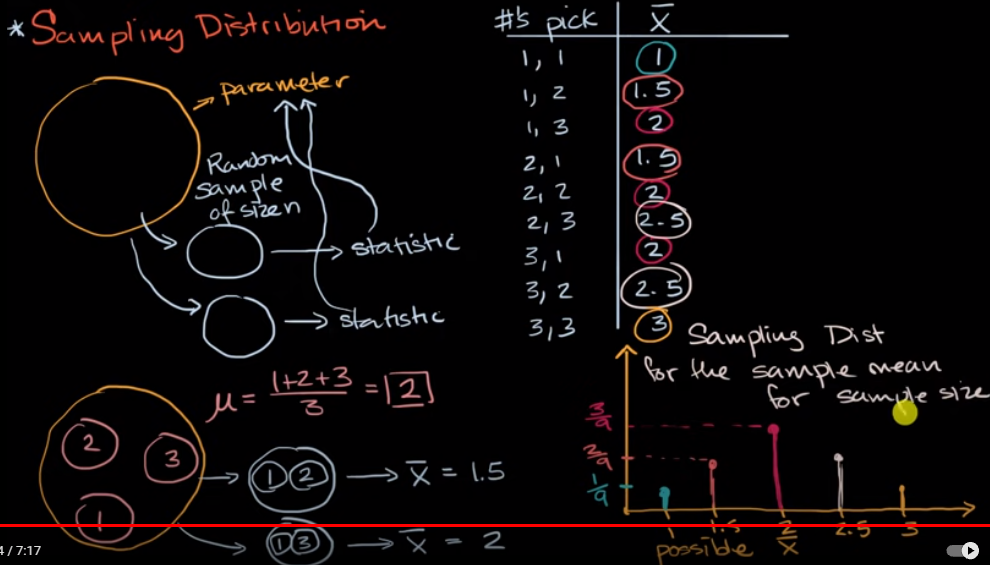 *Sampling Distribution
parameter
Random
sample
of size n
statistic
statistic
#'s pick x̄
1, 1 1
1, 2 1.5
1, 3 2
2, 1 1.5
2, 2 2
2, 3 2.5
3, 1 2
3, 2 2.5
3, 3 3
μ = (1+2+3)/3 = 2
2
3
1
1 2 → x̄ = 1.5
1 3 → x̄ = 2
Sampling Dist
for the sample mean
for sample size
3/9
2/9
1/9
1 1.5 2 2.5 3
possible x̄
/ 7:17